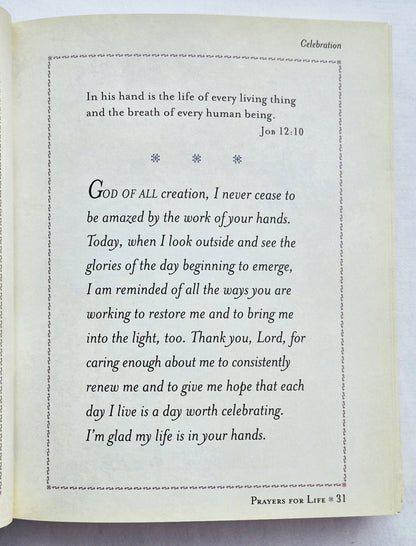 Celebration
In his hand is the life of every living thing
and the breath of every human being.
Job 12:10
God of all creation, I never cease to
be amazed by the work of your hands.
Today, when I look outside and see the
glories of the day beginning to emerge,
I am reminded of all the ways you are
working to restore me and to bring me
into the light, too. Thank you, Lord, for
caring enough about me to consistently
renew me and to give me hope that each
day I live is a day worth celebrating.
I'm glad my life is in your hands.
Prayers for Life ※ 31